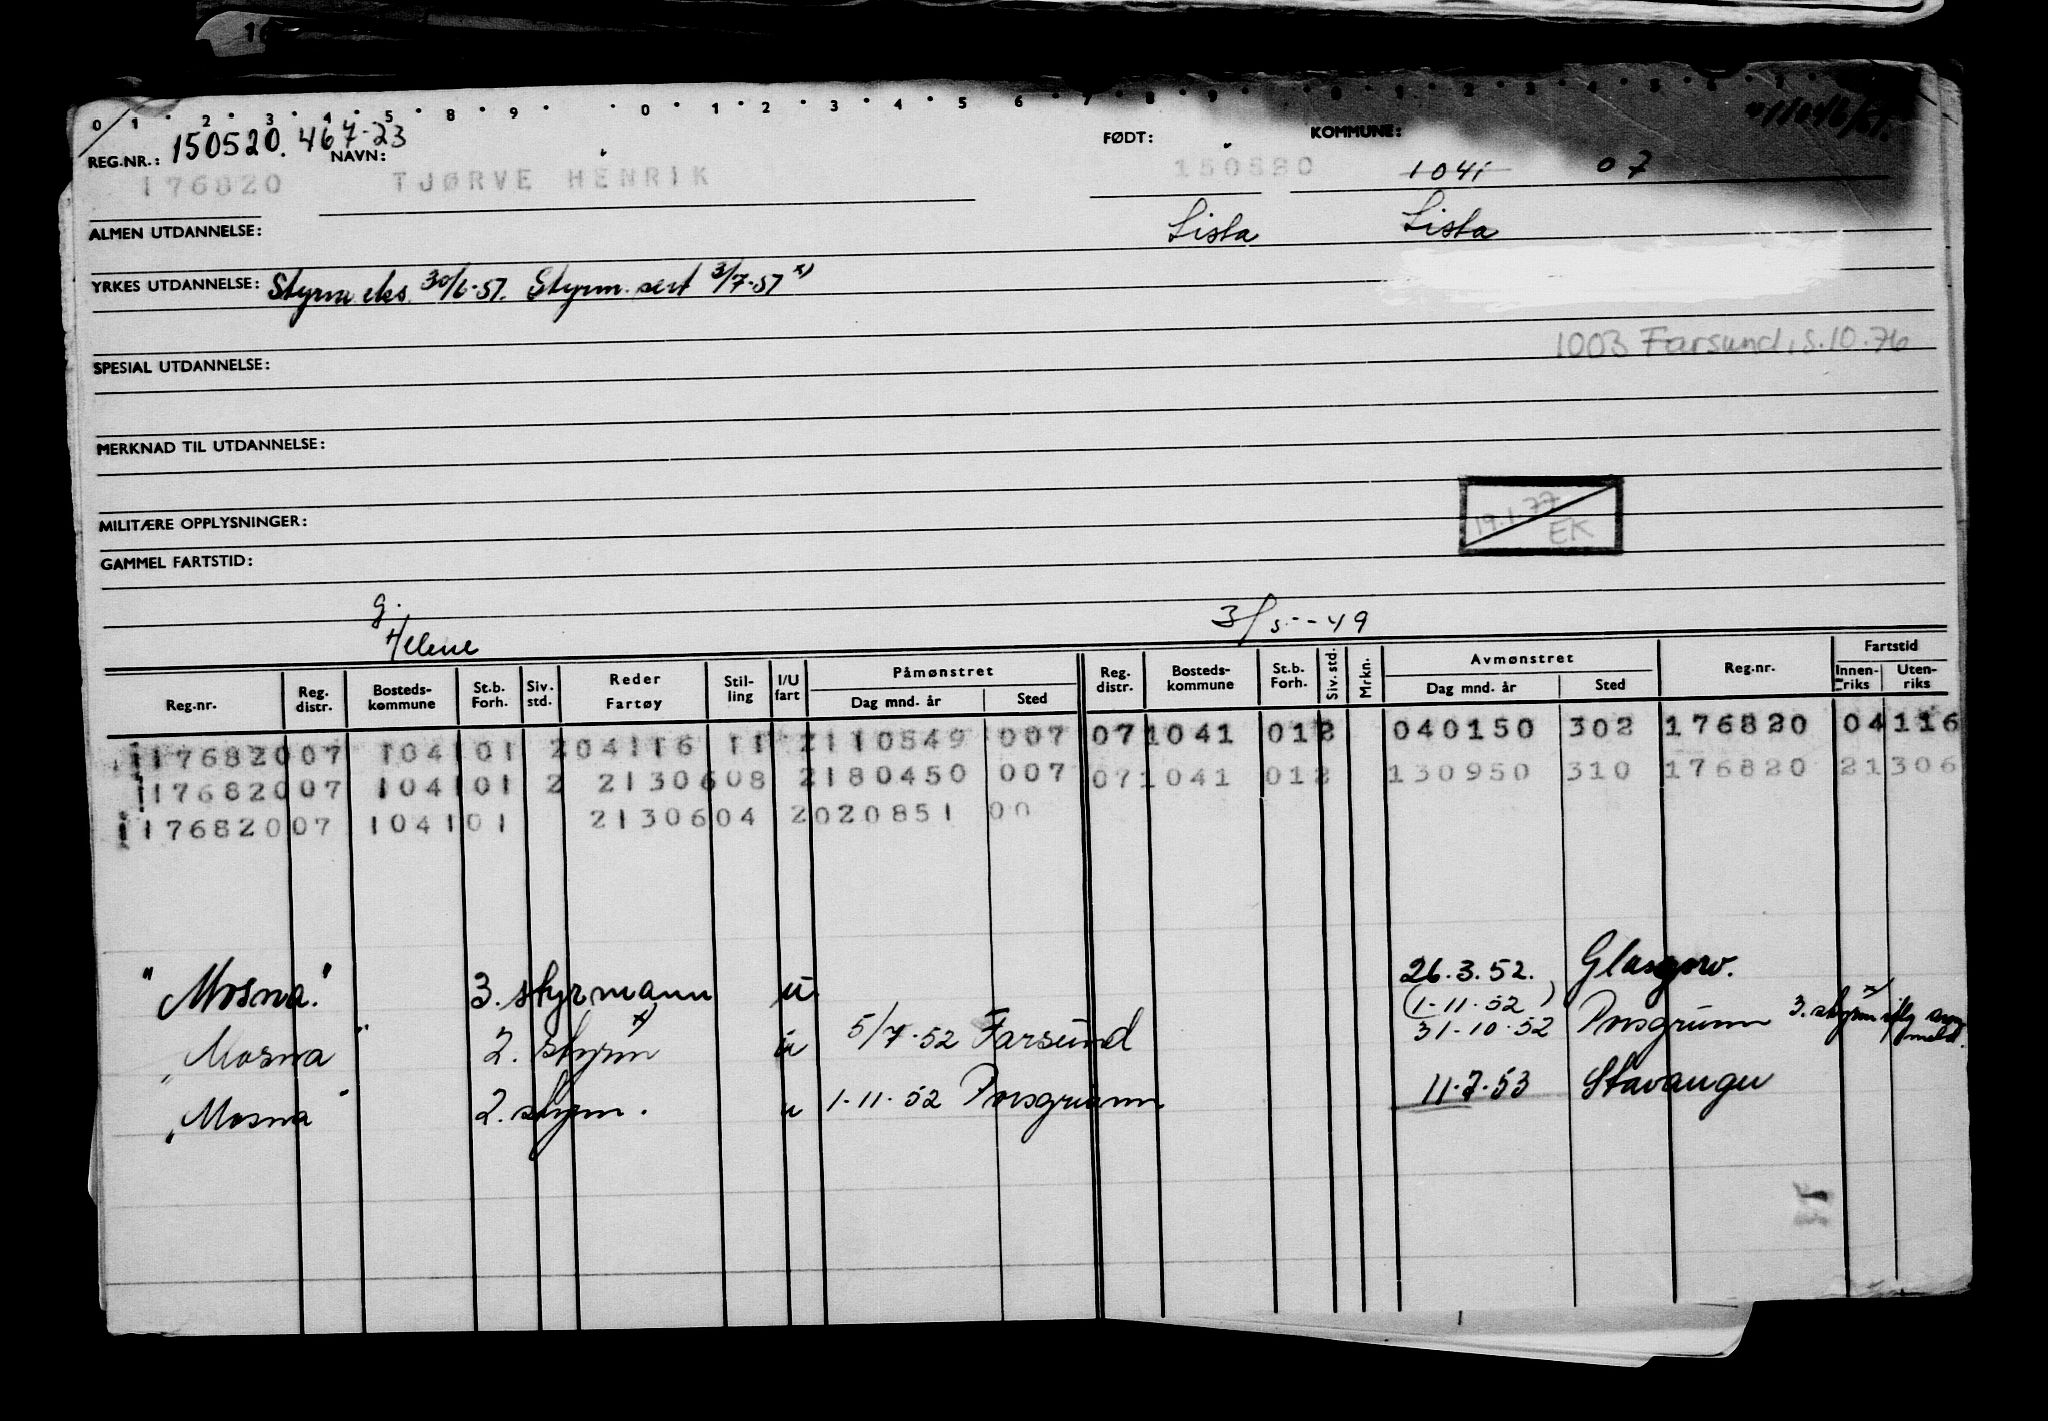 0 1 2 3 4 5 8 9 0 1 2 3 4 5 6 7 8 9 0 1 2 3 4 5 6 7
REG.NR.: 150520. 467-23 NAVN: FØDT: KOMMUNE:
176820 TJØRVE HENRIK 150520 1041 07
ALMEN UTDANNELSE: Lista Lista
YRKES UTDANNELSE: Styrm eks. 30/6-51. Styrm. sert 3/7-51 x)
1003 Farsund, s.10.76
SPESIAL UTDANNELSE:
MERKNAD TIL UTDANNELSE:
MILITÆRE OPPLYSNINGER: 19.1.77 EK
GAMMEL FARTSTID:
g. Helene 3/5--49
Reg.nr. Reg. distr. Bosteds-kommune St.b. Forh. Siv. std. Reder Fartøy Stil-ling I/U fart Påmønstret Dag mnd. år Sted Reg. distr. Bosteds-kommune St.b. Forh. Siv. std. Mrkn. Avmønstret Dag mnd. år Sted Reg.nr. Fartstid Innen-riks Uten-riks
176820 07 1041 01 2 04116 11 2 110549 007 07 1041 01 2 040150 302 176820 04116
176820 07 1041 01 2 21306 08 2 180450 007 07 1041 01 2 130950 310 176820 21306
176820 07 1041 01 21306 04 2 020851 00
"Mosna." 3. styrmann u. 26.3.52. Glasgow.
(1-11-52)
"Mosna" 2. styrm x) u 5/7-52 Farsund 31-10-52 Porsgrunn 3. styrm x)
"Mosna" 2. styrm. u 1-11-52 Porsgrunn 11-7-53 Stavanger